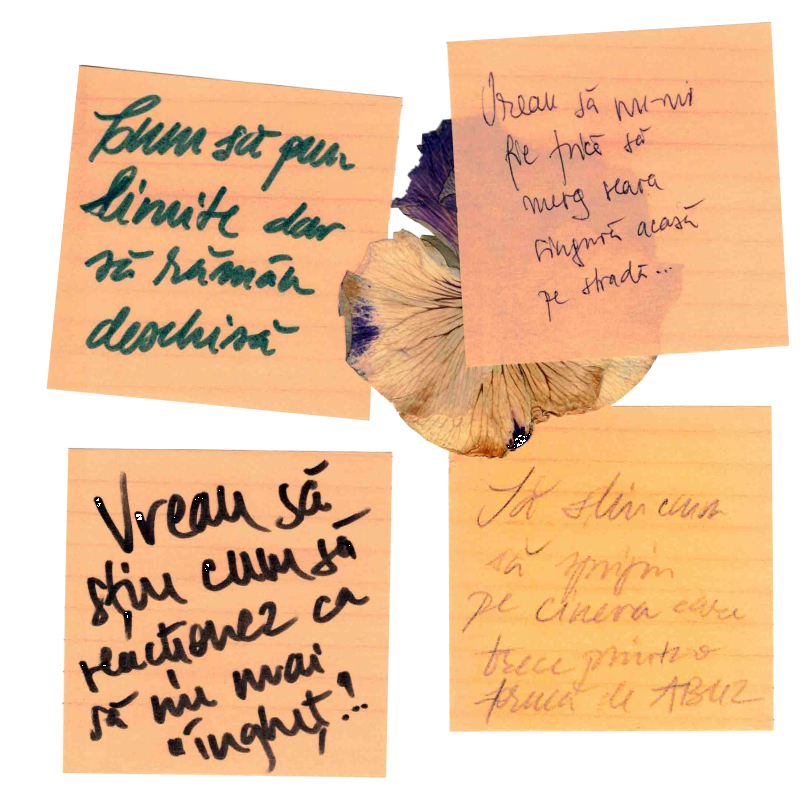 Cum să pun
limite dar
să rămân
deschisă
Vreau să nu-mi
fie frică să
merg seara
singură acasă
pe stradă...
Vreau să
știu cum să
reacționez ca
să nu mai
îngheț!..
Să știu cum
să sprijin
pe cineva care
trece printr-o
formă de ABUZ